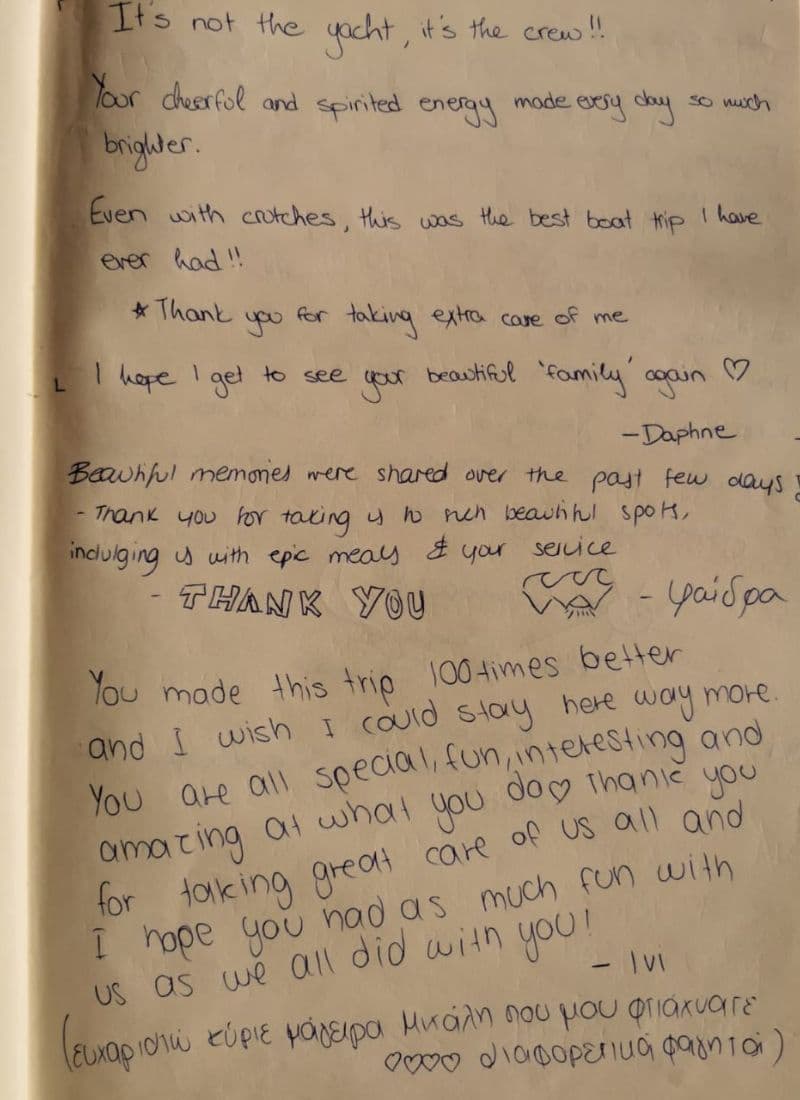 It's not the yacht, it's the crew!!
Your cheerful and spirited energy made every day so much
brighter.
Even with crutches, this was the best boat trip I have
ever had!!
* Thank you for taking extra care of me
I hope I get to see your beautiful 'family' again ♡
- Daphne
Beautiful memories were shared over the past few days!
- Thank you for taking us to such beautiful spots,
indulging us with epic meals & your service
- THANK YOU
- φαίδρα
You made this trip 100 times better
and I wish I could stay here way more.
You are all special, fun, interesting and
amazing at what you do♡ thank you
for taking great care of us all and
I hope you had as much fun with
us as we all did with you!
- Ivi
(ευχαριστώ κύριε μάγειρα Μιχάλη που μου φτιάχνατε
♡♡♡♡ διαφορετικά φαγητά)